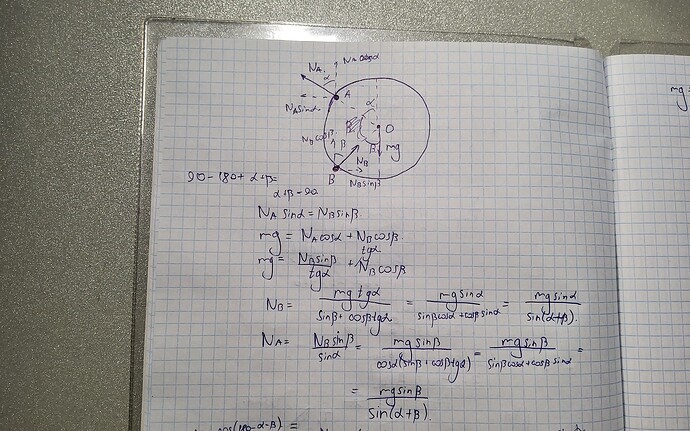 N_A N_A cosα
α
N_A sinα A α
mg
N_B cosβ O
β β mg
B N_B
N_B sinβ
90-180+α+β=
α+β-90
N_A sinα = N_B sinβ
mg = N_A cosα + N_B cosβ
tgα
mg = N_B sinβ / tgα + N_B cosβ
N_B = mg tgα / sinβ + cosβ tgα = mg sinα / sinβ cosα + cosβ sinα = mg sinα / sin(α+β).
N_A = N_B sinβ / sinα = mg sinβ / cosα(sinβ + cosβ tgα) = mg sinβ / sinβ cosα + cosβ sinα =
= mg sinβ / sin(α+β).
(180-α-β) =